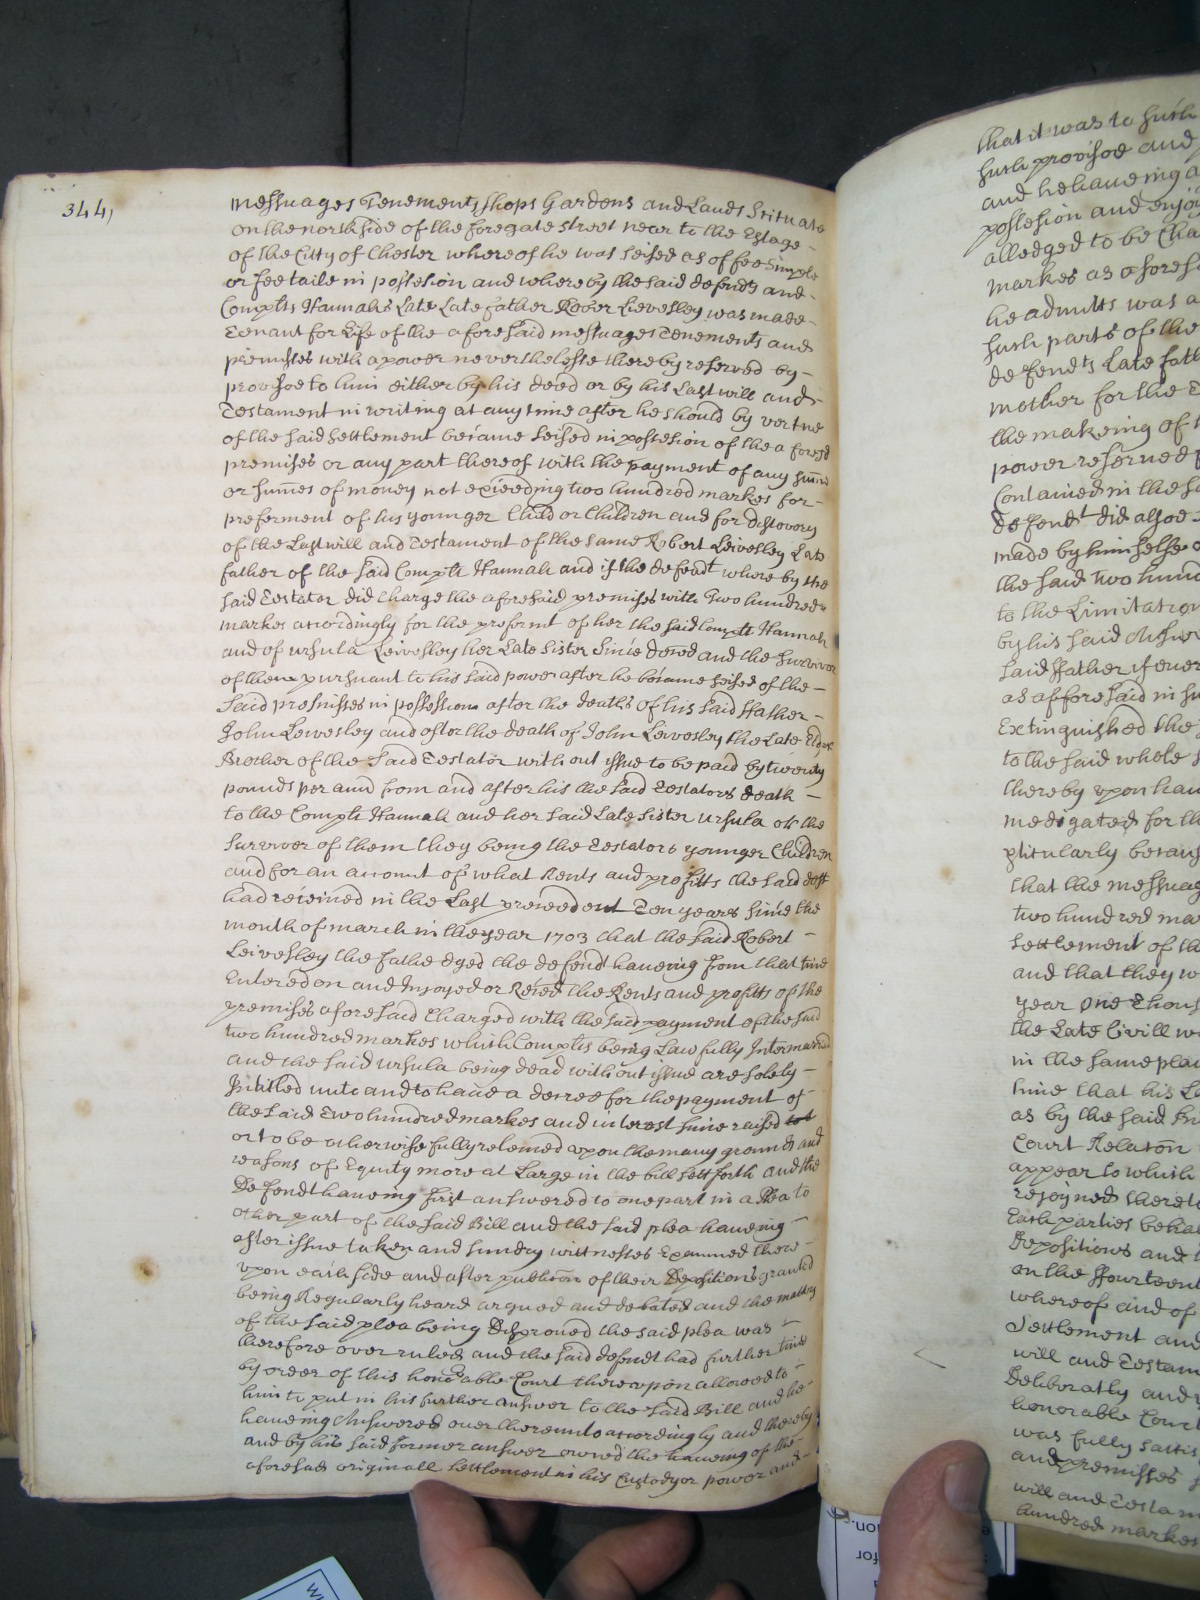 344)
messuages Tenements shops Gardens and Lands Scituate
on the north side of the foregate street neer to the Estage
of the Citty of Chester whereof he was seised as of fee simple
or fee taile in possesion and whereby the said defendts and
Complts Hannah's Late Late father Rober Lievesley was made
Tenant for Life of the aforesaid messuages Tenements and
premisses with a power neverthelesse thereby reserved by
provisoe to him either by his deed or by his Last will and
Testament in writing at any time after he should by vertue
of the said settlement became seised in possesion of the aforesd
premises or any part thereof with the payment of any sum̄
or sum̄es of money not exceeding two hundred markes for
preferment of his younger Child or Children and for discovery
of the Last will and Testament of the same Robert Leivesley Late
father of the said Complt Hannah and if the defendt where by the
said Testator did Charge the aforesaid premises with Two hundred
markes accordingly for the preformt of her the said Complt Hannah
and of ursula Leivesley her Late sister Since dec̄ed and the survivor
of them pursuant to his said power after he became seised of the
said premisses in possession after the deaths of his said ffather
John Leivesley and after the death of John Leivesley the Late Elder
Brother of the said Testator without issue to be paid by twenty
pounds per ann̄ from and after his the said Testators death
to the Complt Hannah and her said Late sister ursula or the
survivor of them they being the Testators younger Children
and for an account of what Rents and profitts the said deft
had received in the Last preceedent Ten yeares since the
month of march in the year 1703 that the said Robert
Leivesley the father dyed the defend haveing from that time
Entered on and Injoyed or Rec̄ed the Rents and profitts of the
premises aforesaid Charged with the said payment of the said
two hundred markes which Complts being Lawfully Intermarried
and the said ursula being dead without issue are solely
Intitled unto and to have a decree for the payment of
the said Two hundred markes and interest since raised
or to be otherwise fully releived upon the many grounds and
reasons of Equity more at Large in the bill sett forth and the
Defendt haveing first answered to one part in a Plea to
other part of the said Bill and the said plea haveing
after issue taken and sundry wittnesses Examined there
upon each side and after publicōn of their Depositions granted
being Regularly heard argued and debated and the matter
of the said plea being Disproved the said plea was
therefore over ruled and the said defendt had further time
by order of this honorable Court thereupon allowed to
him to put in his further answer to the said Bill and he
haveing Answered over thereunto accordingly and thereby
and by his said former answer owned the haveing of the
aforesaid originall settlement in his Custody or power and
that it was to such
such provisoe and
and he haveing a
possesion and enjoy
alledged to be Cha
markes as aforesa
he admitts was a
such parts of the
defendts Late fath
mother for the
the makeing of
power reserved
Contained in the
defendt did alsoe
made by himselfe o
the said Two hund
to the Limitation
by his said Answer
said ffather if ever
as afforesaid in
Extinguished the
to the said whole
thereby upon hav
for th
pticularly becaus
that the messuag
two hundred mar
settlement of th
and that they w
year One Thous
the Late Civill w
in the same plac
time that his L
as by the said
Court Relac̄on
appear to which
rejoyned thereto
Each parties behal
Depositions and
on the ffourteent
whereof and of
Settlement and
will and Testam
Deliberatly and
honorable Court
was fully sattis
and premisses
will and Testam
hundred markes